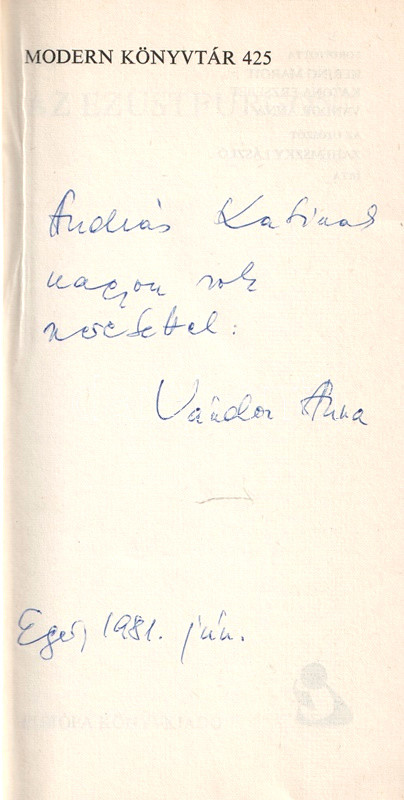 MODERN KÖNYVTÁR 425
András Katinak
nagyon sok
szeretettel:
Vándor Anna
Eger, 1981. jún.